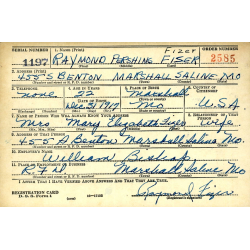 SERIAL NUMBER 1. NAME (Print) ORDER NUMBER
Fizer
1197 RAYMOND PERSHING FISER 2585
2. ADDRESS (Print)
455 S BENTON MARSHALL SALINE MO
3. TELEPHONE 4. AGE IN YEARS 5. PLACE OF BIRTH 6. COUNTRY OF CITIZENSHIP
none 22 Marshall
DATE OF BIRTH
1919 Mo U.S.A
7. NAME OF PERSON WHO WILL ALWAYS KNOW YOUR ADDRESS 8. RELATIONSHIP OF THAT PERSON
Mrs Mary Elizabeth Fiser Wife
9. ADDRESS OF THAT PERSON
455 Benton Marshall Saline Mo.
10. EMPLOYER'S NAME
William
11. PLACE OF EMPLOYMENT OR BUSINESS
Marshall Saline Mo
I AFFIRM THAT I HAVE VERIFIED ABOVE ANSWERS AND THAT THEY ARE TRUE.
REGISTRATION CARD
D. S. S. Form 1 Raymond Fizer